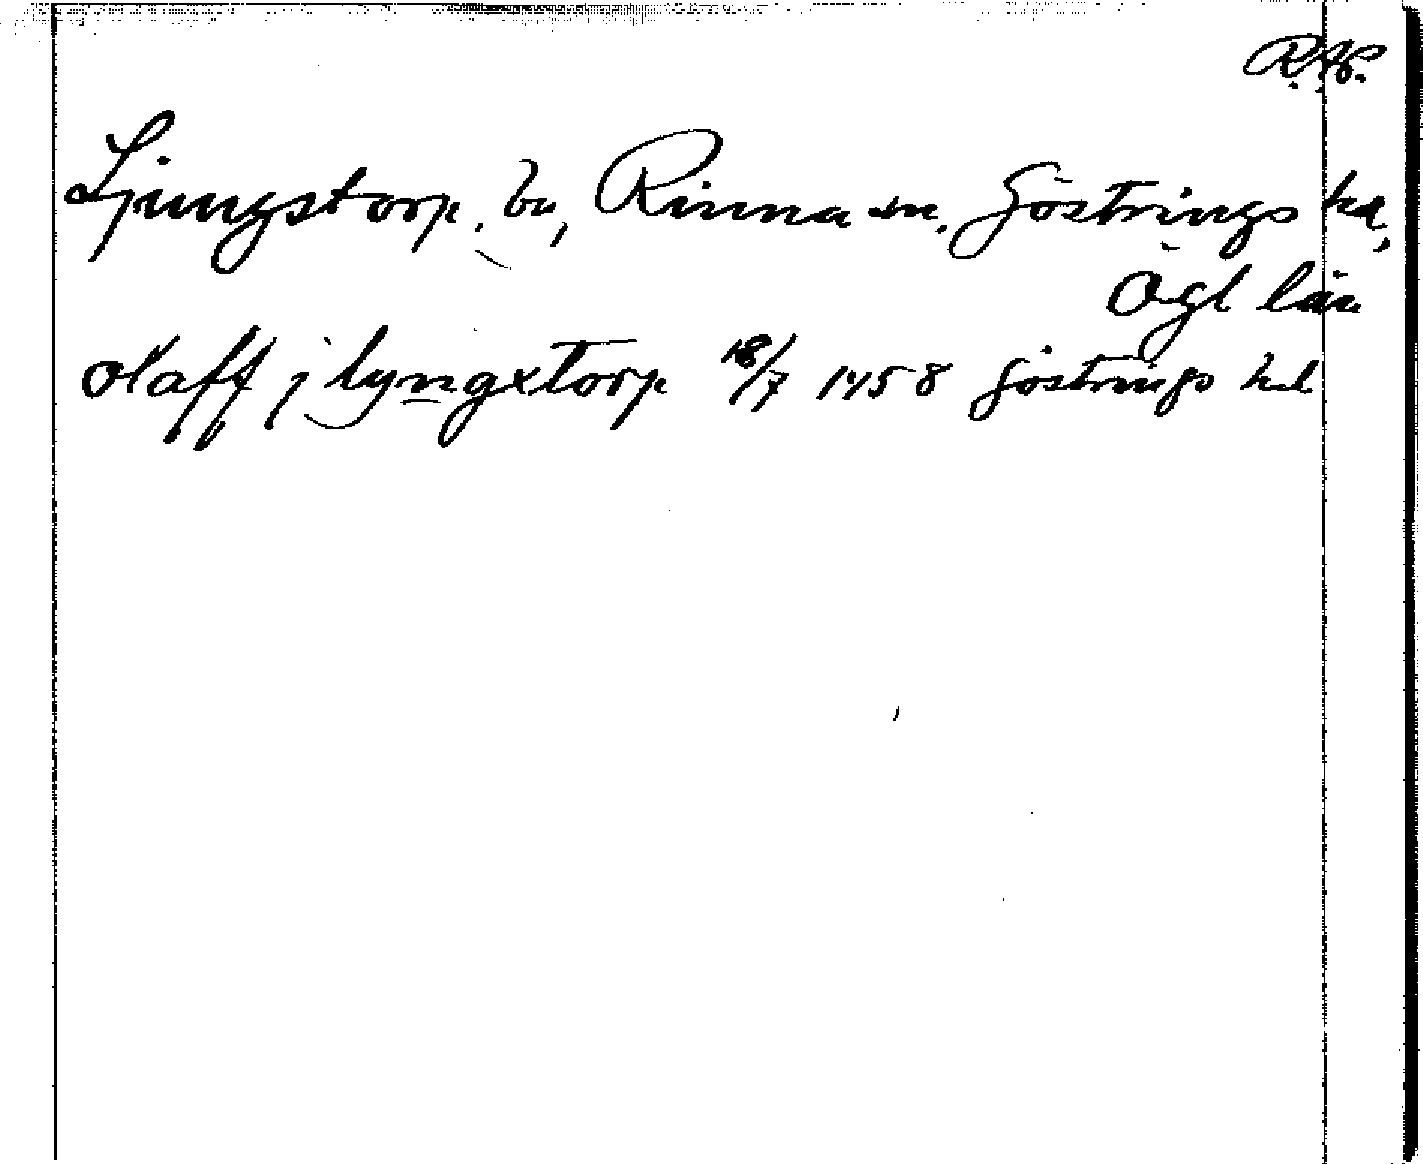 R.Ap.
Ljungstorp. by, Rinna sn. Göstrings hd,
Ögl län
olaff j lyngxtorp 18/7 1458 Göstrings hd